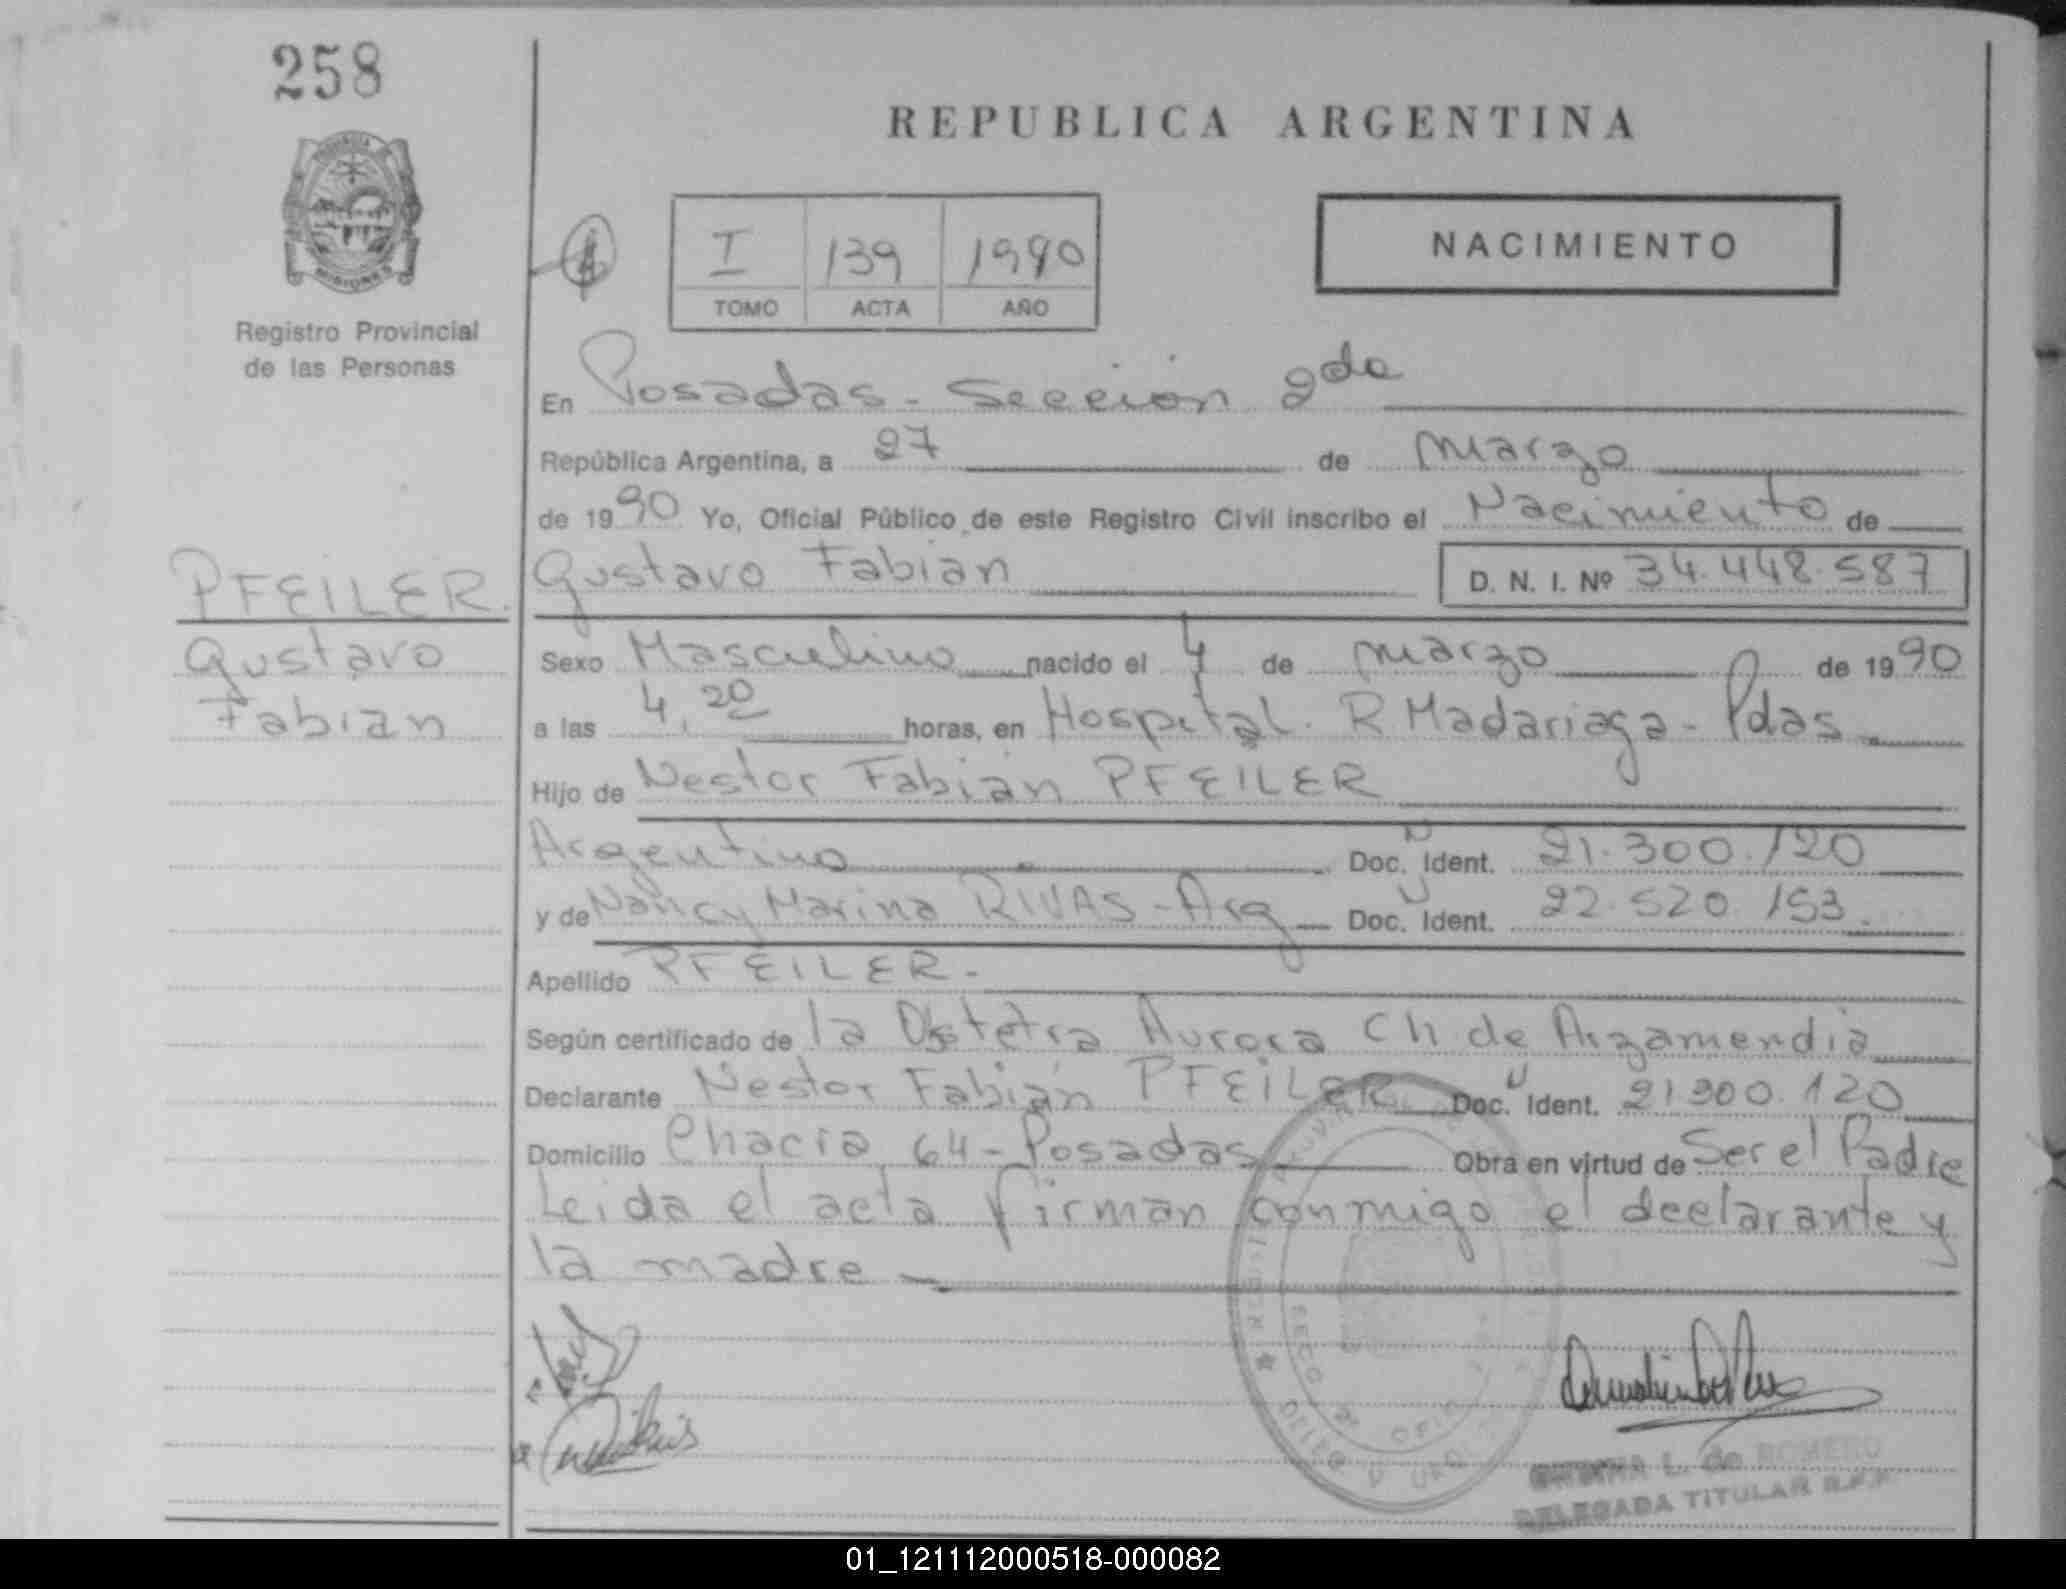 258
REPUBLICA ARGENTINA
PROVINCIA DE MISIONES
Registro Provincial
de las Personas
I 139 1990
TOMO ACTA AÑO
NACIMIENTO
En Posadas - Sección 2da
República Argentina, a 27 de marzo
de 1990 Yo, Oficial Público de este Registro Civil inscribo el Nacimiento de
Gustavo Fabián D. N. I. Nº 34.448.587
PFEILER.
Gustavo
Fabián
Sexo Masculino nacido el 4 de marzo de 1990
a las 4,20 horas, en Hospital R Madariaga - Pdas.
Hijo de Nestor Fabián PFEILER
Argentino Doc. Ident. 21.300.120
y de Nancy Marina RIVAS - Arg Doc. Ident. 22.520.153.
Apellido PFEILER.
Según certificado de la Obstetra Aurora Ch. de Arzamendia
Declarante Nestor Fabián PFEILER Doc. Ident. 21300.120
Domicilio Chacra 64 - Posadas Obra en virtud de Ser el Padre
Leida el acta firman conmigo el declarante y
la madre
L. de ROMERO
DELEGADA TITULAR R.P.P.
01_121112000518-000082